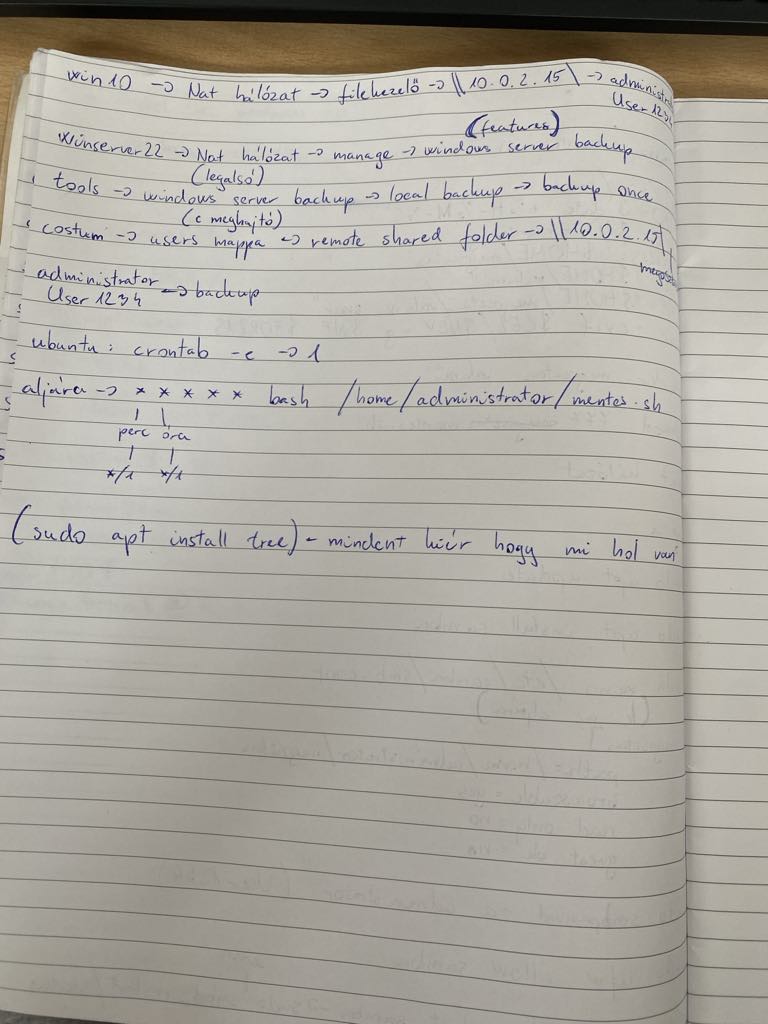 win10 → Nat hálózat → filekezelő → \\10.0.2.15\ → administr
User 1234
(features)
winserver22 → Nat hálózat → manage → windows server backup
(legalsó)
tools → windows server backup → local backup → backup once
(c meghajtó)
costum → users mappa → remote shared folder → \\10.0.2.15\
administrator
User 1234 → backup
ubuntu: crontab -e → 1
aljára → * * * * * bash /home/administrator/mentes.sh
perc óra
*/1 */1
(sudo apt install tree) - mindent kiír hogy mi hol van